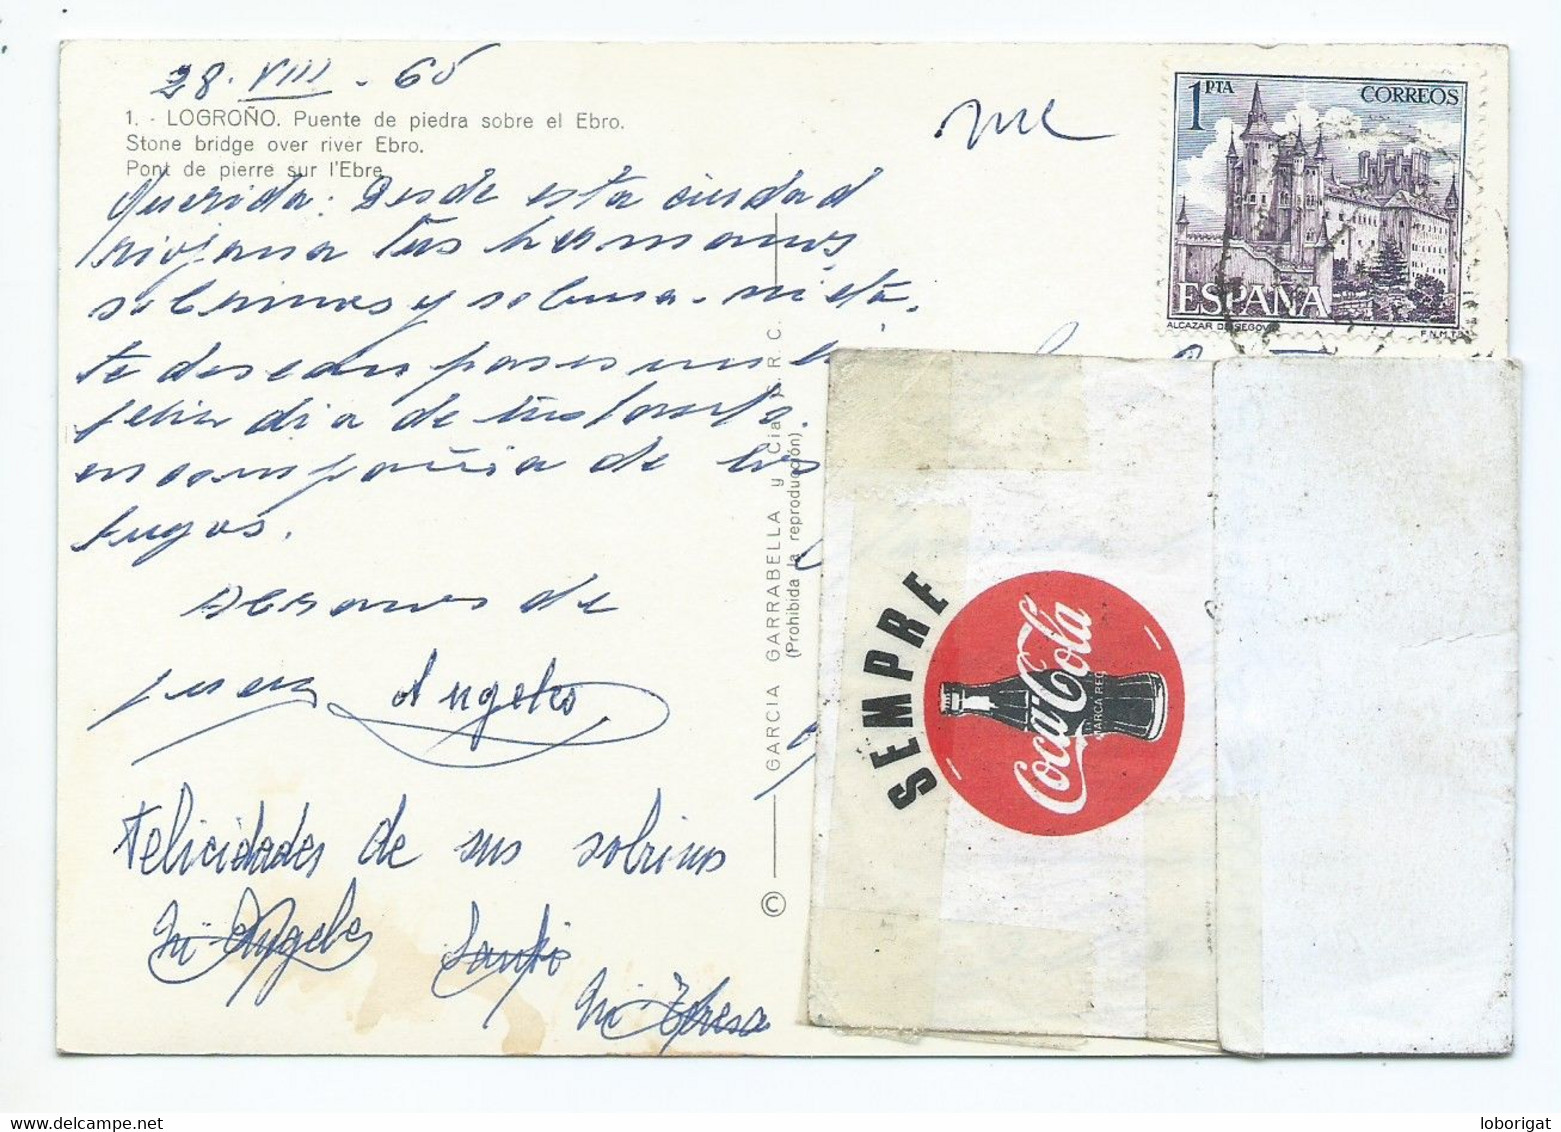 28-VIII-65
1. - LOGROÑO. Puente de piedra sobre el Ebro.
Stone bridge over river Ebro.
Pont de pierre sur l'Ebre
Querida: Desde esta ciudad
riojana tus hermanos,
sobrinos y sobrina-nieta,
te desean pases un
feliz dia de tu santo.
en compañia de los
tuyos.
Besanos de
Angeles
Felicidades de sus sobrinos
Mª Angeles
Mª Teresa
GARCIA GARRABELLA y Cia
R. C.
(Prohibida la reproducción)
©
1 PTA
CORREOS
ESPAÑA
ALCAZAR DE SEGOVIA
F.N.M.T.
SEMPRE
Coca-Cola
MARCA REG
loborigat